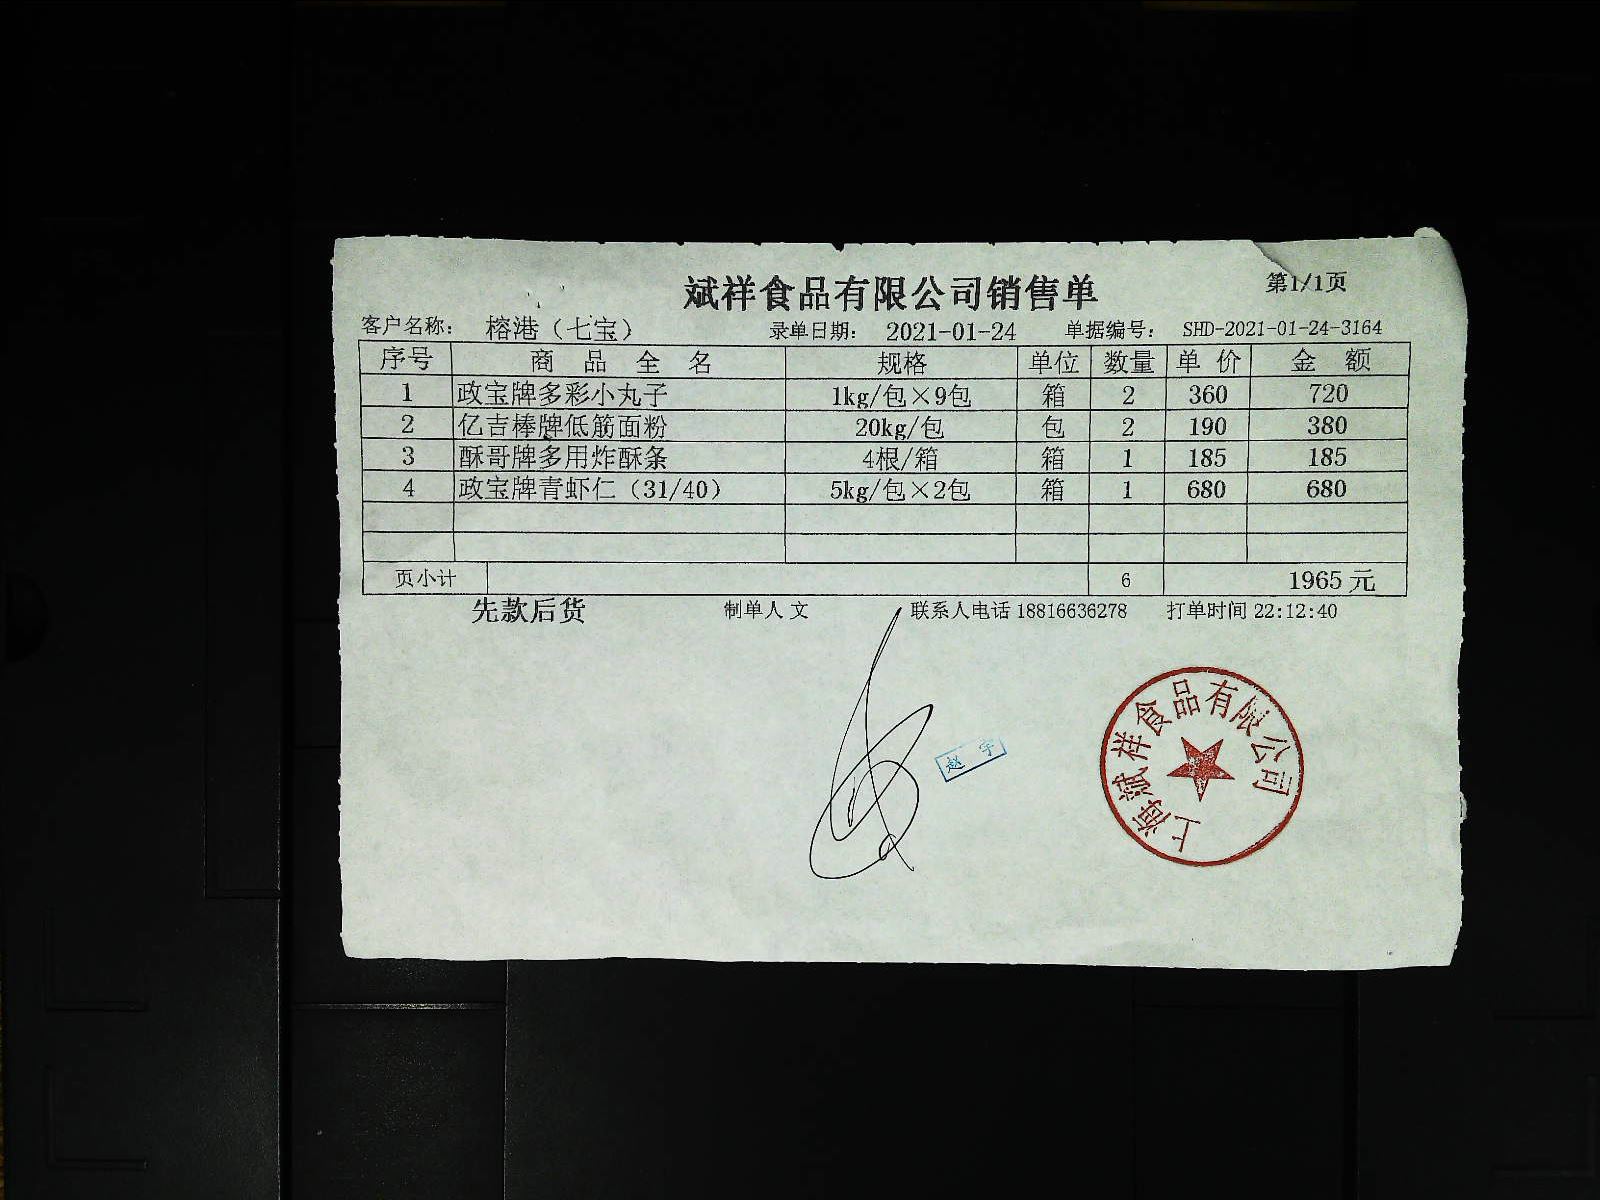 斌祥食品有限公司销售单 第1/1页
客户名称： 榕港（七宝） 录单日期： 2021-01-24 单据编号： SHD-2021-01-24-3164
序号 商品全名 规格 单位 数量 单价 金额
1 政宝牌多彩小丸子 1kg/包×9包 箱 2 360 720
2 亿吉棒牌低筋面粉 20kg/包 包 2 190 380
3 酥哥牌多用炸酥条 4根/箱 箱 1 185 185
4 政宝牌青虾仁（31/40） 5kg/包×2包 箱 1 680 680
页小计 6 1965元
先款后货 制单人 文 联系人电话 18816636278 打单时间 22:12:40
赵宇
上海斌祥食品有限公司